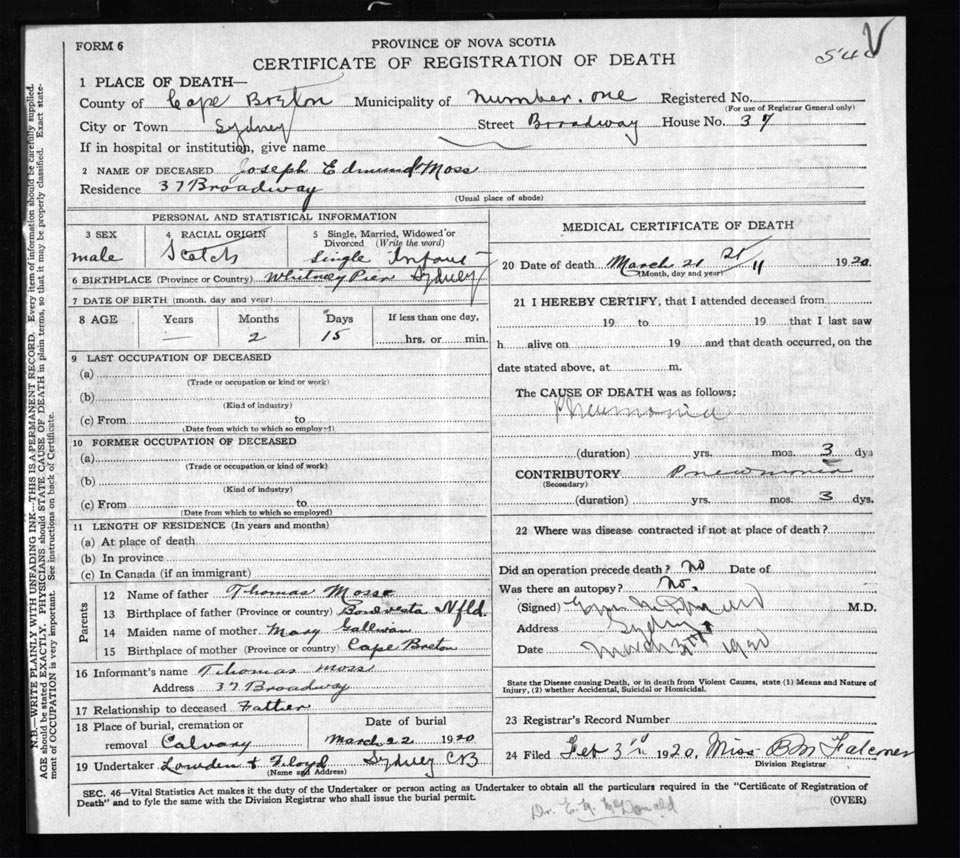 FORM 6
PROVINCE OF NOVA SCOTIA
CERTIFICATE OF REGISTRATION OF DEATH
1 PLACE OF DEATH—
County of Cape Breton Municipality of Number. one Registered No.
(For use of Registrar General only)
City or Town Sydney Street Broadway House No. 37
If in hospital or institution, give name
2 NAME OF DECEASED Joseph Edmund Moss
Residence 37 Broadway
(Usual place of abode)
PERSONAL AND STATISTICAL INFORMATION
3 SEX 4 RACIAL ORIGIN 5 Single, Married, Widowed or Divorced (Write the word)
male Scotch Single Infant
6 BIRTHPLACE (Province or Country) Whitney Pier Sydney
7 DATE OF BIRTH (month, day and year)
8 AGE Years Months Days If less than one day,
— 2 15 hrs. or min.
9 LAST OCCUPATION OF DECEASED
(a)
(Trade or occupation or kind of work)
(b)
(Kind of industry)
(c) From to
(Date from which to which so employed)
10 FORMER OCCUPATION OF DECEASED
(a)
(Trade or occupation or kind of work)
(b)
(Kind of industry)
(c) From to
(Date from which to which so employed)
11 LENGTH OF RESIDENCE (In years and months)
(a) At place of death
(b) In province
(c) In Canada (if an immigrant)
Parents
12 Name of father Thomas Moss
13 Birthplace of father (Province or country) Bonavesta Nfld.
14 Maiden name of mother Mary Gallivan
15 Birthplace of mother (Province or country) Cape Breton
16 Informant's name Thomas Moss
Address 37 Broadway
17 Relationship to deceased Father
18 Place of burial, cremation or removal Calvary Date of burial March 22 1920
19 Undertaker Lowden & Floyd Sydney CB
(Name and Address)
MEDICAL CERTIFICATE OF DEATH
20 Date of death March 21 21/11 1920.
(Month, day and year)
21 I HEREBY CERTIFY, that I attended deceased from
19 to 19 that I last saw
h alive on 19 and that death occurred, on the
date stated above, at m.
The CAUSE OF DEATH was as follows:
Pneumonia
(duration) yrs. mos. 3 dys
CONTRIBUTORY Pnewmonia
(Secondary)
(duration) yrs. mos. 3 dys.
22 Where was disease contracted if not at place of death?
Did an operation precede death? No Date of
Was there an autopsy? No.
(Signed) M.D.
Address Sydney
Date March 1920
State the Disease causing Death, or in death from Violent Causes, state (1) Means and Nature of
Injury, (2) whether Accidental, Suicidal or Homicidal.
23 Registrar's Record Number
24 Filed Feb 3rd 1920, Miss B M Falconer
Division Registrar
SEC. 46—Vital Statistics Act makes it the duty of the Undertaker or person acting as Undertaker to obtain all the particulars required in the "Certificate of Registration of
Death" and to fyle the same with the Division Registrar who shall issue the burial permit.
(OVER)
Dr. E. M. McDonald
N.B.—WRITE PLAINLY WITH UNFADING INK—THIS IS A PERMANENT RECORD. Every items of information should be carefully supplied.
AGE should be stated EXACTLY. PHYSICIANS should STATE CAUSE OF DEATH in plain terms, so that it may be properly classified. Exact state-
ment of OCCUPATION is very important. See instructions on back of Certificate.